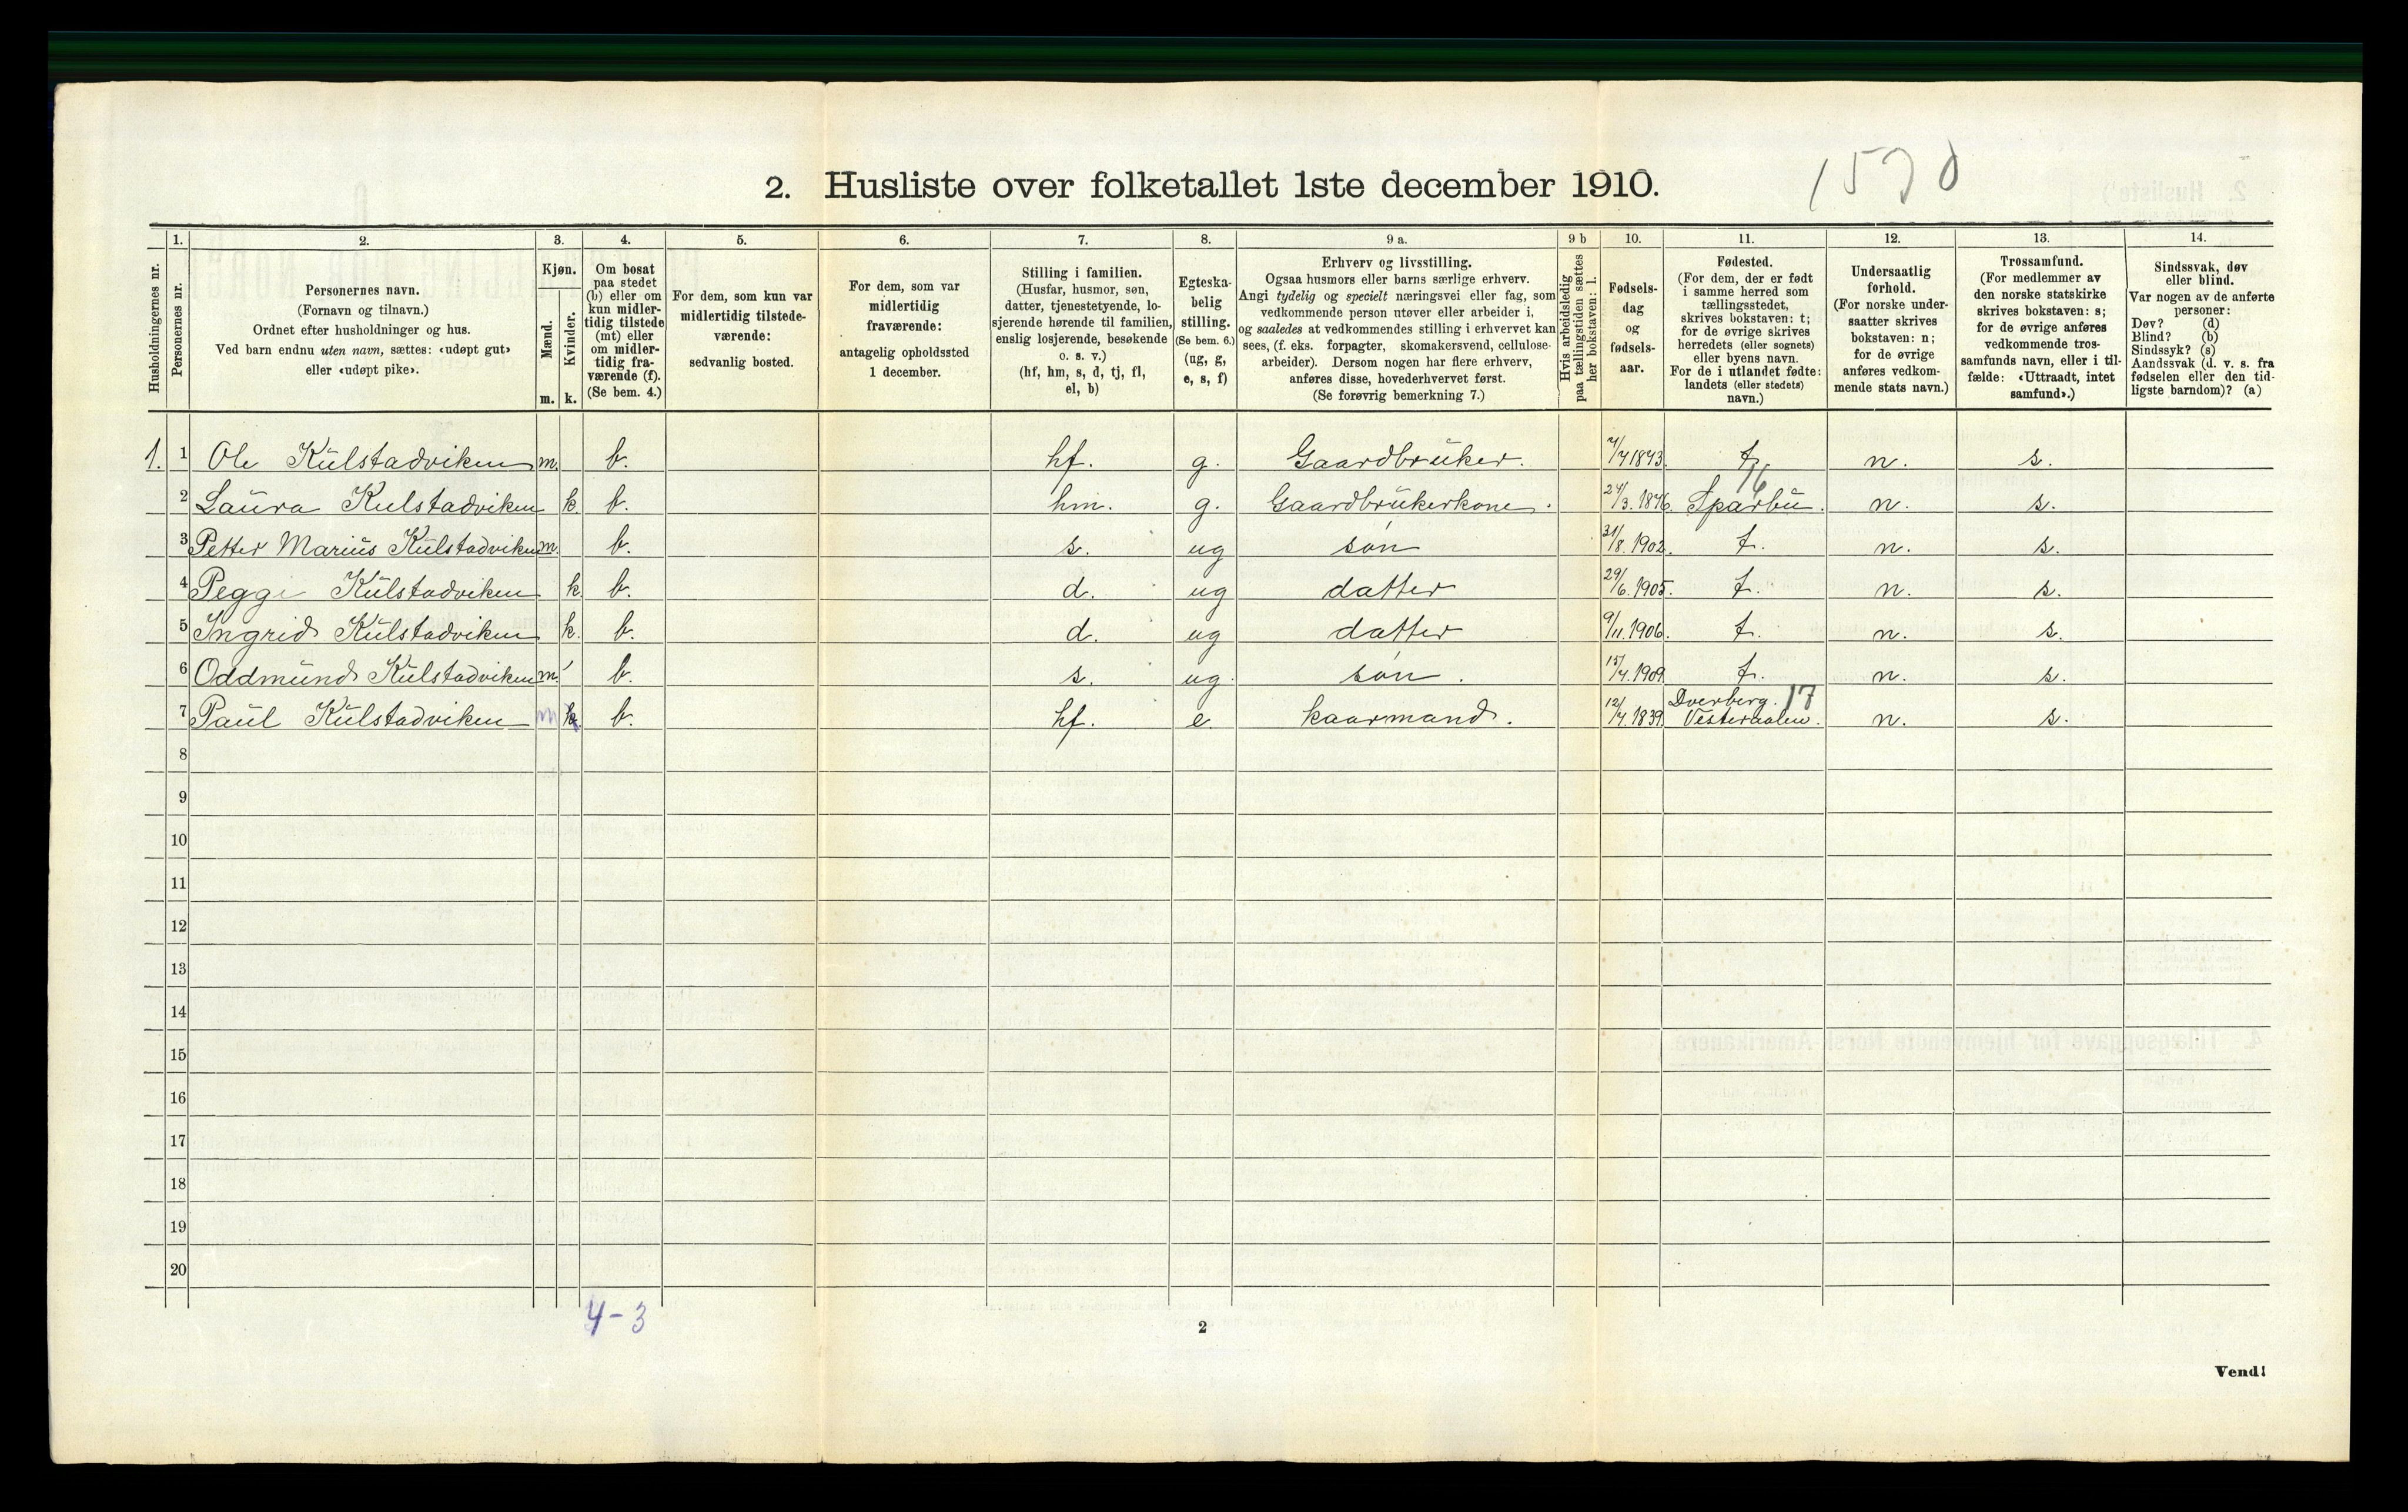 2. Husliste over folketallet 1ste december 1910.
1. 2. 3. 4. 5. 6. 7. 8. 9 a. 9 b 10. 11. 12. 13. 14.
Husholdningernes nr.
Personernes nr.
Personernes navn.
(Fornavn og tilnavn.)
Ordnet efter husholdninger og hus.
Ved barn endnu uten navn, sættes: «udøpt gut»
eller «udøpt pike».
Kjøn.
Mænd.
Kvinder.
m. k.
Om bosat
paa stedet
(b) eller om
kun midler-
tidig tilstede
(mt) eller
om midler-
tidig fra-
værende (f).
(Se bem. 4.)
For dem, som kun var
midlertidig tilstede-
værende:
sedvanlig bosted.
For dem, som var
midlertidig
fraværende:
antagelig opholdssted
1 december.
Stilling i familien.
(Husfar, husmor, søn,
datter, tjenestetyende, lo-
sjerende hørende til familien,
enslig losjerende, besøkende
o. s. v.)
(hf, hm, s, d, tj, fl,
el, b)
Egteska-
belig
stilling.
(Se bem. 6.)
(ug, g,
e, s, f)
Erhverv og livsstilling.
Ogsaa husmors eller barns særlige erhverv.
Angi tydelig og specielt næringsvei eller fag, som
vedkommende person utøver eller arbeider i,
og saaledes at vedkommendes stilling i erhvervet kan
sees, (f. eks. forpagter, skomakersvend, cellulose-
arbeider). Dersom nogen har flere erhverv,
anføres disse, hovederhvervet først.
(Se forøvrig bemerkning 7.)
Hvis arbeidsledig
paa tællingstiden sættes
her bokstaven: l.
Fødsels-
dag
og
fødsels-
aar.
Fødested.
(For dem, der er født
i samme herred som
tællingsstedet,
skrives bokstaven: t;
for de øvrige skrives
herredets (eller sognets)
eller byens navn.
For de i utlandet fødte:
landets (eller stedets)
navn.)
Undersaatlig
forhold.
(For norske under-
saatter skrives
bokstaven: n;
for de øvrige
anføres vedkom-
mende stats navn.)
Trossamfund.
(For medlemmer av
den norske statskirke
skrives bokstaven: s;
for de øvrige anføres
vedkommende tros-
samfunds navn, eller i til-
fælde: «Uttraadt, intet
samfund».)
Sindssvak, døv
eller blind.
Var nogen av de anførte
personer:
Døv? (d)
Blind? (b)
Sindssyk? (s)
Aandssvak (d. v. s. fra
fødselen eller den tid-
ligste barndom)? (a)
1. 1 Ole Kulstadviken m. b. hf. g. Gaardbruker. 1843. t. n. s.
16
2 Laura Kulstadviken k. b. hm. g. Gaardbrukerkone. 24/3. 1876. Sparbu. n. s.
3 Petter Marius Kulstadviken m. b. s. ug søn 31/8. 1902. t. n. s.
4 Peggi Kulstadviken k. b. d. ug datter 29/6. 1905. t. n. s.
5 Ingrid Kulstadviken k. b. d. ug datter 9/11. 1906. t. n. s.
6 Oddmund Kulstadviken m. b. s. ug. søn. 15/4. 1909. t. n. s.
Dverberg. 17
7 Paul Kulstadviken m k. b. hf. e. kaarmand. 12/4. 1839. Vesteraalen. n. s.
8
9
10
11
12
13
14
15
16
17
18
19
20
4-3
2
Vend!